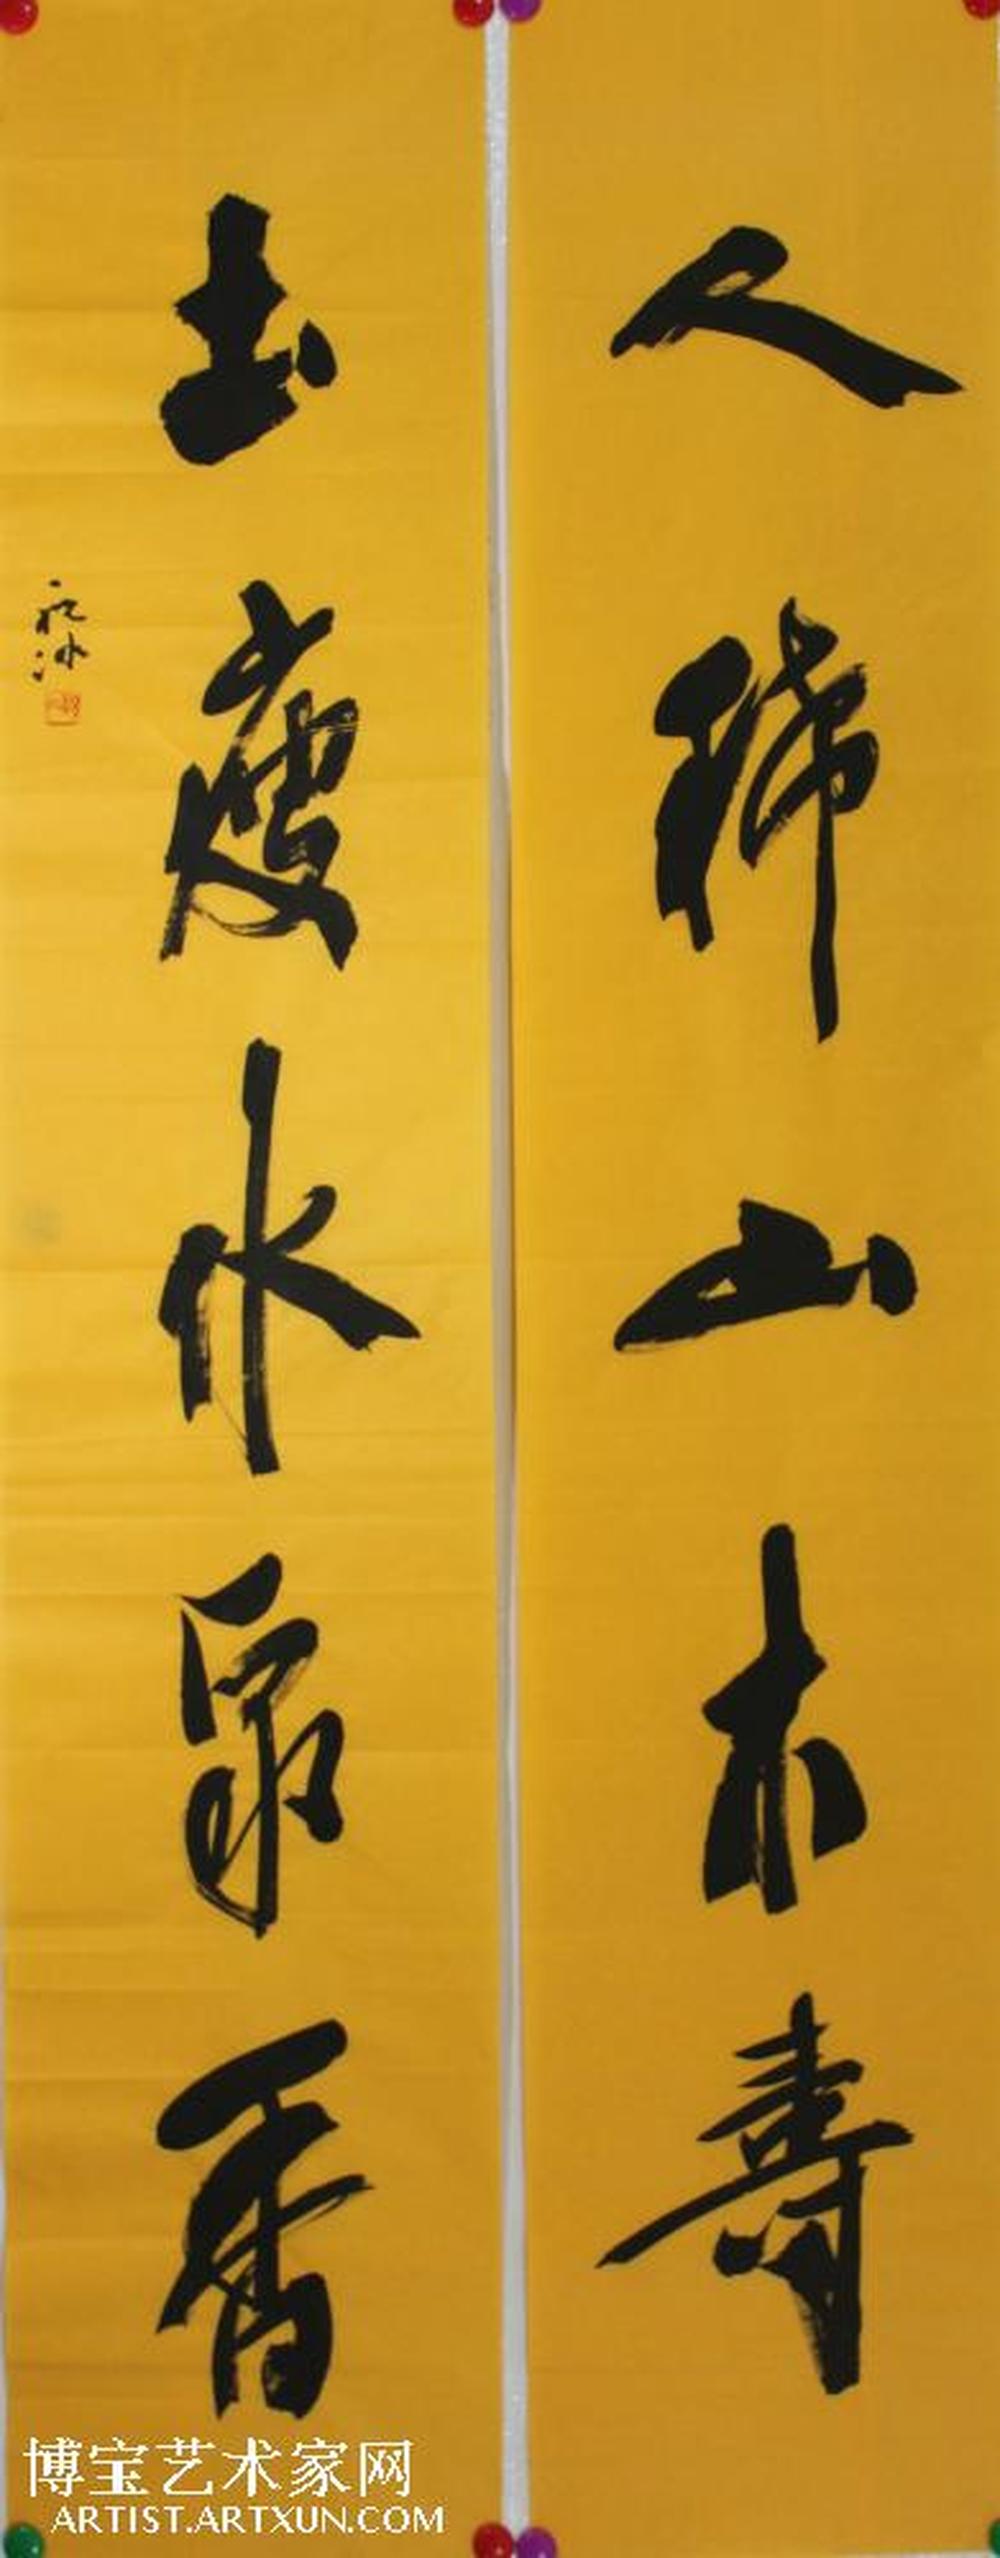 人稀山亦寿
土瘦水泉香
博宝艺术家网
ARTIST.ARTXUN.COM